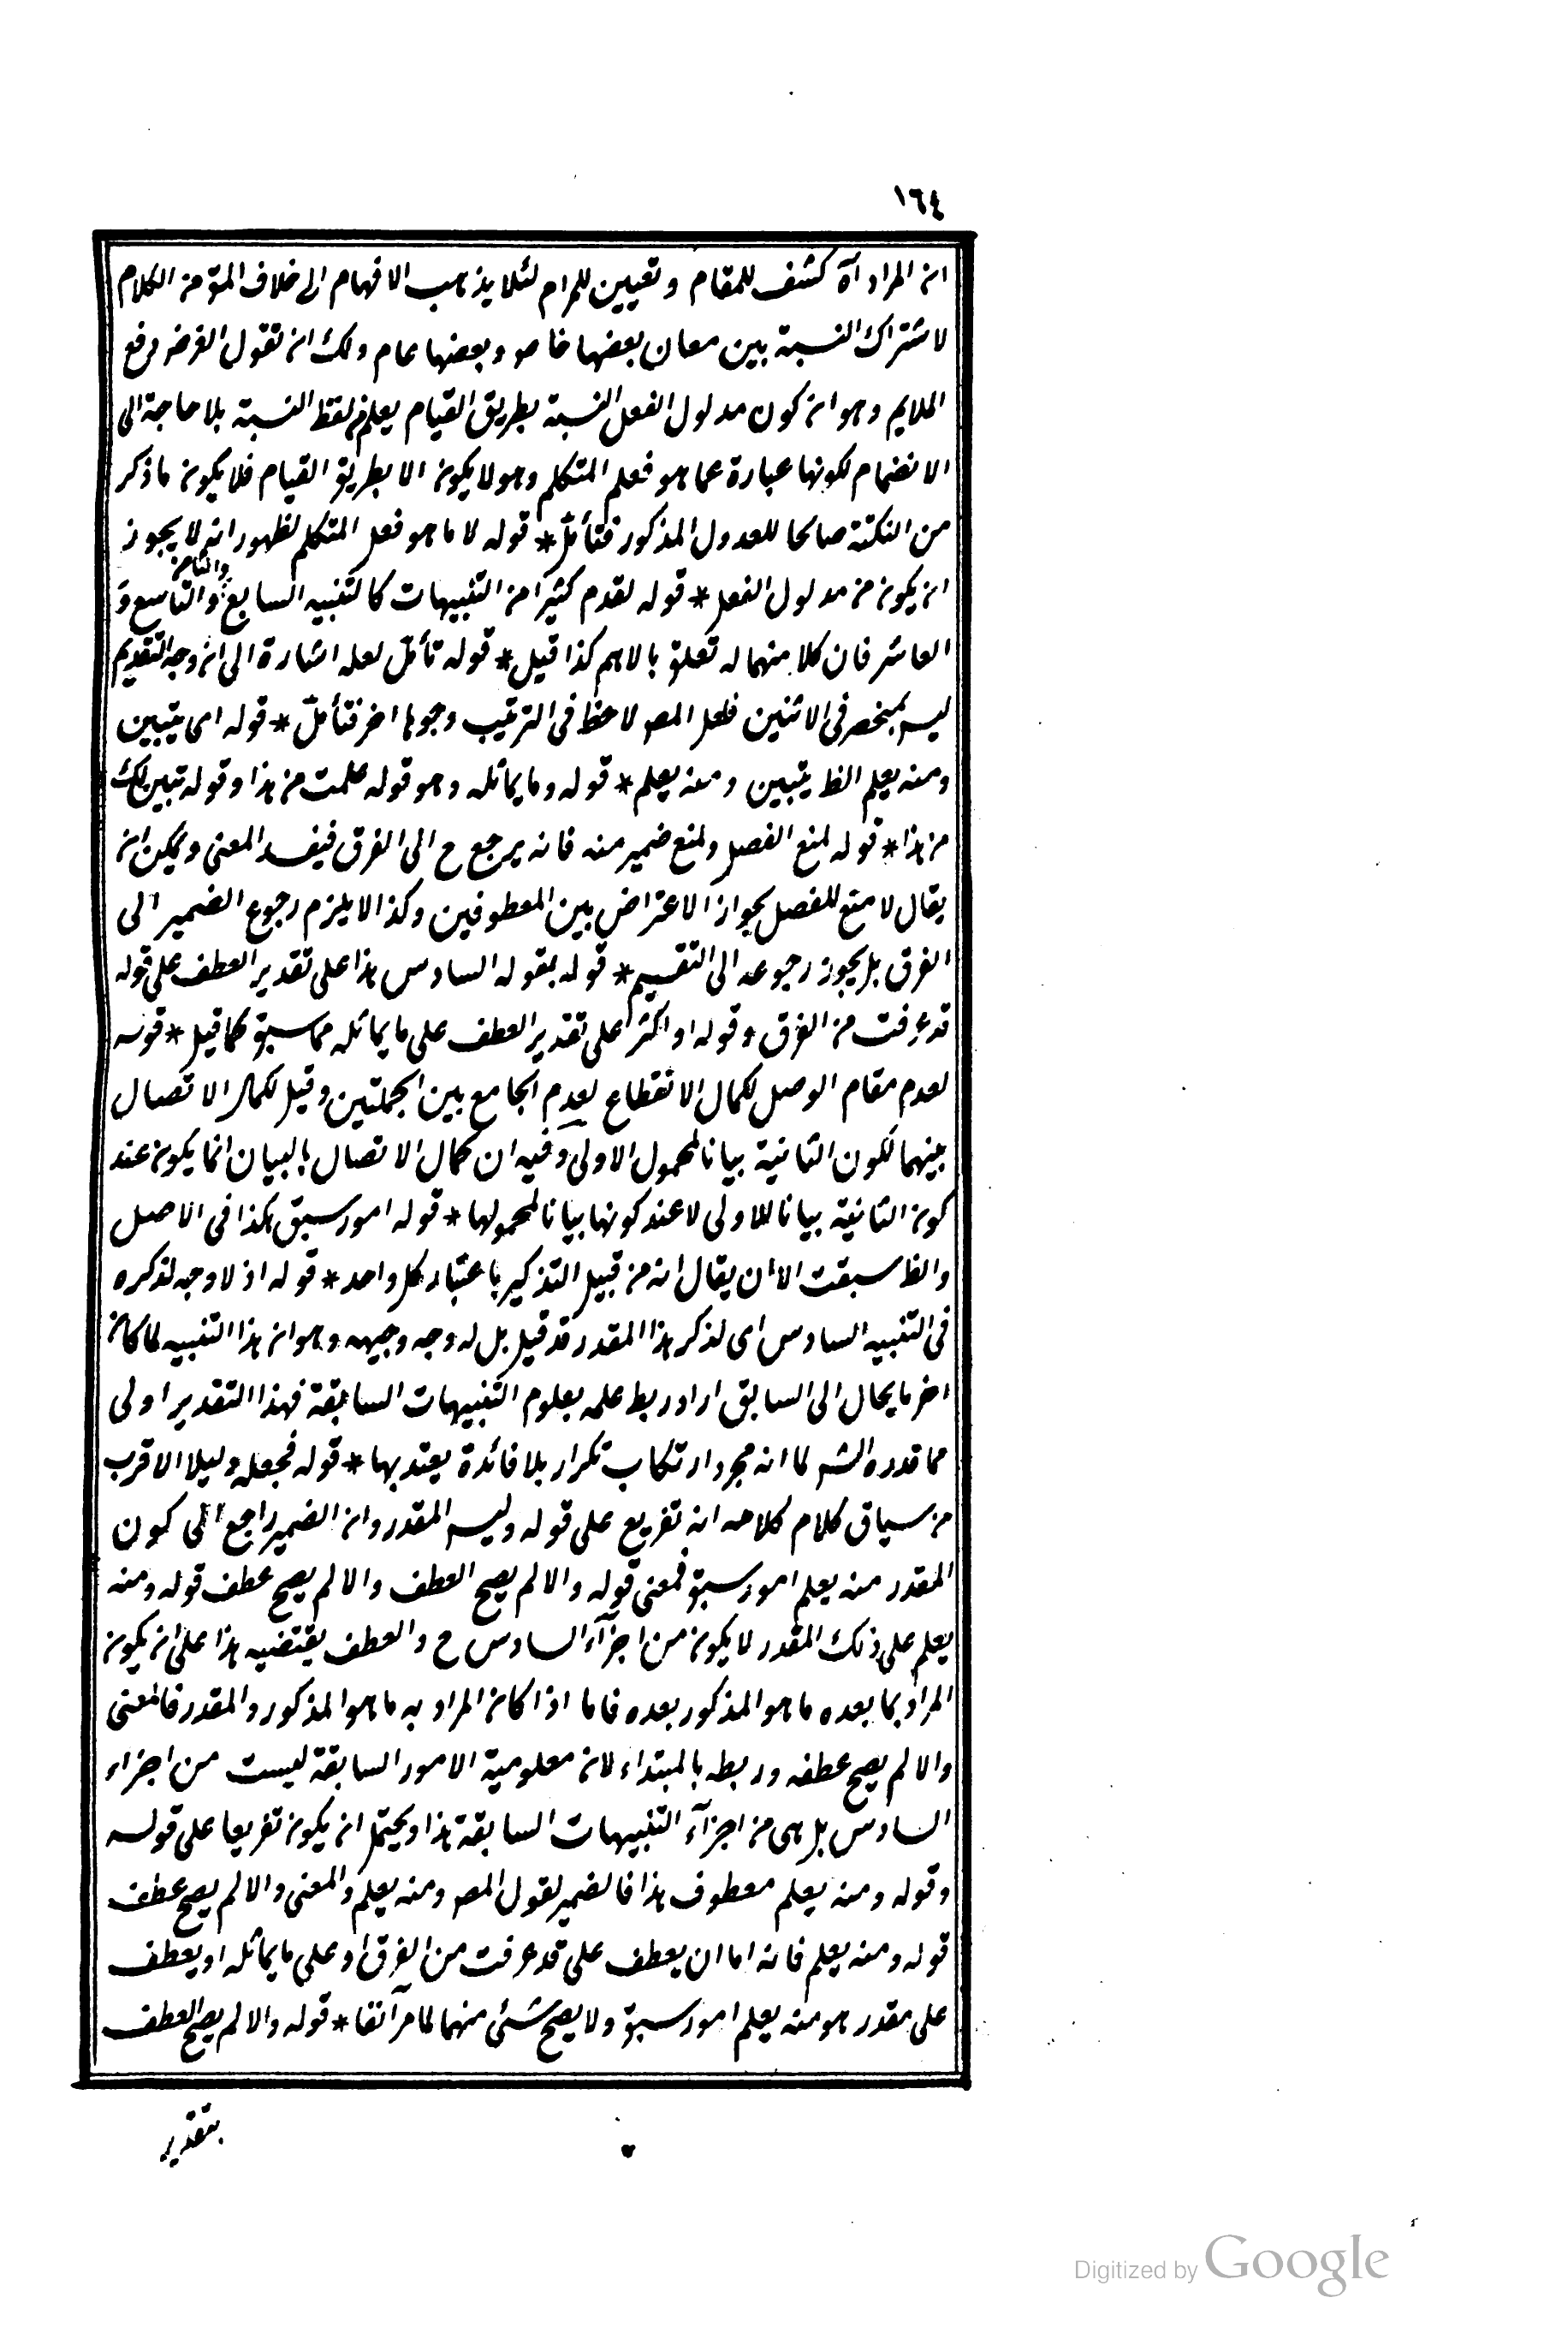 ١٦٤
ان المراد آه كشف للمقام وتعيين للمرام لئلا يذهب الافهام الى خلاف المق من الكلام
لاشتراك النسبة بين معان بعضها خاص وبعضها عام ولك ان تقول الغرض دفع
الملايم وهو ان كون مدلول الفعل النسبة بطريق القيام يعلم من لفظ النسبة بلا حاجة الى
الانضمام لكونها عبارة عما هو فعل المتكلم وهو لا يكون الا بطريق القيام فلا يكون ما ذكر
من النكتة صالحا للعدول المذكور فتأمل * قوله لا ما هو فعل المتكلم لظهور انه لا يجوز
ان يكون من مدلول الفعل * قوله لقدم كثيرا من التنبيهات كالتنبيه السابع والثامن والتاسع و
العاشر فان كلا منهما له تعلق بالاهم كذا قيل * قوله تأمل لعله اشارة الى ان وجه التقديم
ليس بمنحصر فى الاثنين فلعل المص لاحظ فى الترتيب وجوها اخر فتأمل * قوله اى يتبين
ومنه يعلم الظ يتبين ومنه يعلم * قوله وما يماثله وهو قوله علمت من هذا وقوله تبين لك
من هذا * قوله لمنع الفصل ولمنع ضمير منه فانه يرجع ح الى الفرق فيفسد المعنى ويمكن ان
يقال لا منع للفصل بجواز الاعتراض بين المعطوفين وكذا لا يلزم رجوع الضمير الى
الفرق بل يجوز رجوعه الى التقسيم * قوله بقوله السادس هذا على تقدير العطف على قوله
قد عرفت من الفرق وقوله او اكثر على تقدير العطف على ما يماثله مما سبق كما قيل * قوله
لعدم مقام الوصل لكمال الانقطاع لعدم الجامع بين الجملتين وقيل لكمال الاتصال
بينهما لكون الثانية بيانا لمحمول الاولى وفيه ان كمال الاتصال بالبيان انما يكون عند
كون الثانية بيانا للاولى لا عند كونها بيانا لمحمولها * قوله امور سبق هكذا فى الاصل
والظ سبقت الا ان يقال انه من قبيل التذكير باعتبار كل واحد * قوله اذ لا وجه لذكره
فى التنبيه السادس اى لذكر هذا المقدر قد قيل بل له وجه وجيه وهو ان هذا التنبيه لما كان
اخر ما يحال الى السابق اراد ربط علمه بعلوم التنبيهات السابقة فهذا التقدير اولى
مما قدره الش لما انه مجرد ارتكاب تكرار بلا فائدة يعتد بها * قوله فجعله دليلا الاقرب
من سياق كلام كلامه انه تفريع على قوله وليس المقدر وان الضمير راجع الى كون
المقدر منه يعلم امور سبق فمعنى قوله والا لم يصح العطف والا لم يصح عطف قوله ومنه
يعلم على ذلك المقدر لا يكون من اجزآء السادس ح والعطف يقتضيه هذا على ان يكون
المراد بما بعده ما هو المذكور بعده فاما اذا كان المراد به ما هو المذكور والمقدر فالمعنى
والا لم يصح عطفه وربطه بالمبتداء لان معلومية الامور السابقة ليست من اجزاء
السادس بل هى من اجزآء التنبيهات السابقة هذا ويحتمل ان يكون تفريعا على قوله
وقوله ومنه يعلم معطوف هذا فالضمير لقول المص ومنه يعلم والمعنى والا لم يصح عطف
قوله ومنه يعلم فانه اما ان يعطف على قد عرفت من الفرق او على ما يماثله او يعطف
على مقدر هو منه يعلم امور سبق ولا يصح شئ منهما لما مر آنفا * قوله والا لم يصح العطف
بتقدير
Digitized by Google